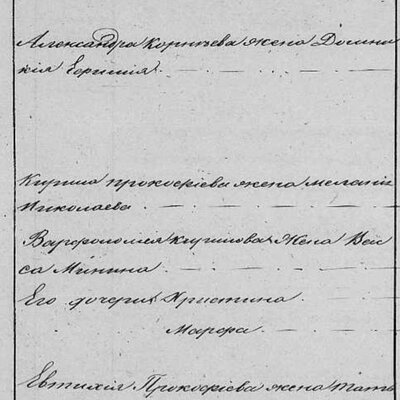 Александра Корнѣева жена Домни
кія Ермиія
Кирила Прокофіева жена Меланіи
Николаева
Варфоломея Кирилова Жена Вей
са Минина
Его дочери Христина
Марфа
Евтихія Прокофіева жена Тать